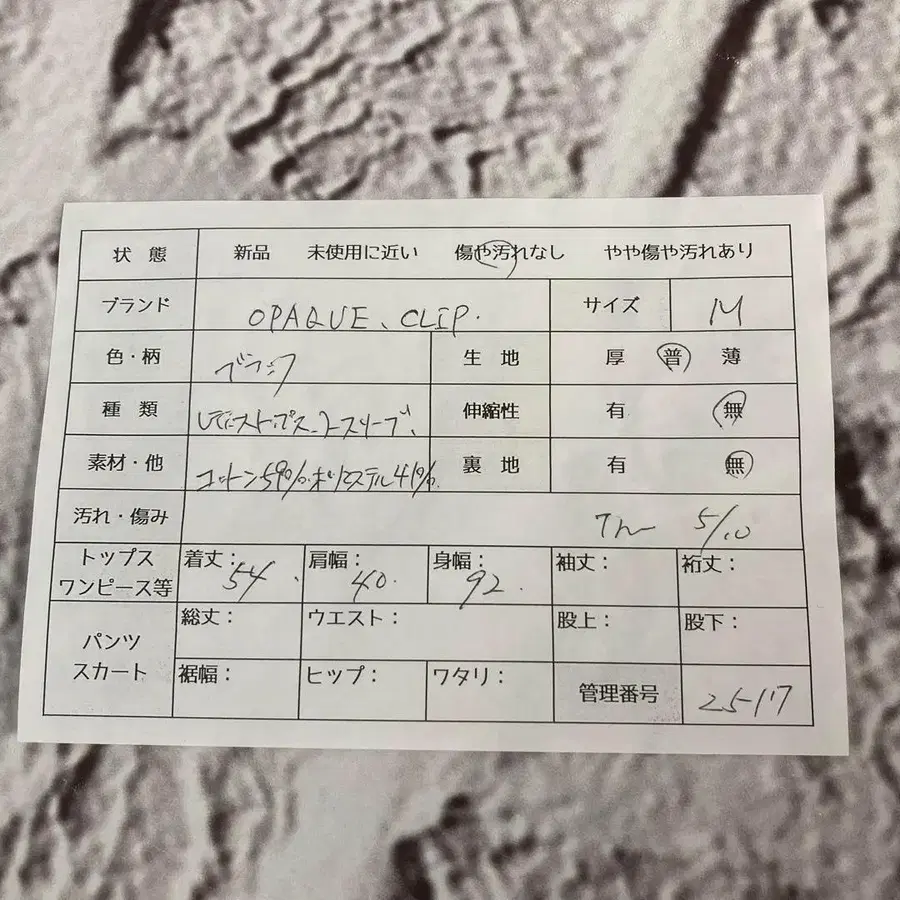 状 態 新品 未使用に近い 傷や汚れなし やや傷や汚れあり
ブランド OPAQUE、CLIP. サイズ M
色・柄 ブラック 生 地 厚 普 薄
種 類 レディーストップス、ノースリーブ、 伸縮性 有 無
素材・他 コットン59%.ポリエステル41%. 裏 地 有 無
汚れ・傷み 5/10
トップス
ワンピース等 着丈: 54. 肩幅: 40. 身幅: 92. 袖丈: 裄丈:
パンツ
スカート 総丈: ウエスト: 股上: 股下:
裾幅: ヒップ: ワタリ: 管理番号 25-117